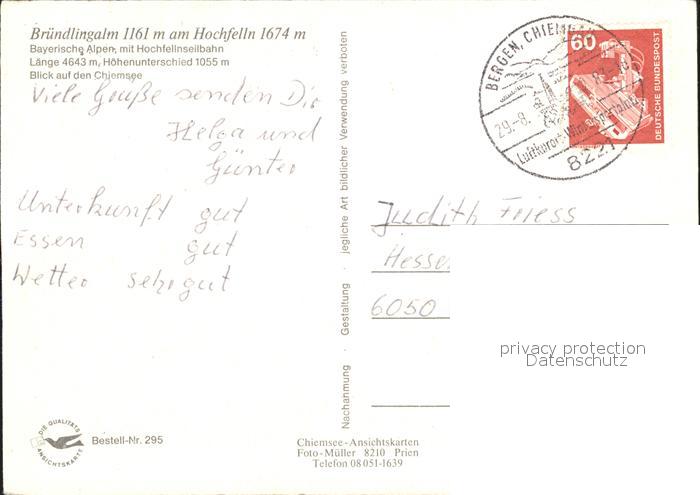 Bründlingalm 1161 m am Hochfelln 1674 m
Bayerische Alpen, mit Hochfellnseilbahn
Länge 4643 m, Höhenunterschied 1055 m
Blick auf den Chiemsee
Viele Grüße senden Dir
Helga und
Günter
Unterkunft gut
Essen gut
Wetter sehr gut
DIE QUALITÄTS
ANSICHTSKARTE
Bestell-Nr. 295
Nachahmung · Gestaltung · jegliche Art bildlicher Verwendung verboten
BERGEN, CHIEMGAU
29.-8.
Luftkurort-Wintersportplatz
8221
60
DEUTSCHE BUNDESPOST
Judith Friess
Hesse
6050
privacy protection
Data Protection
Chiemsee-Ansichtskarten
Foto-Müller 8210 Prien
Telefon 08051-1639